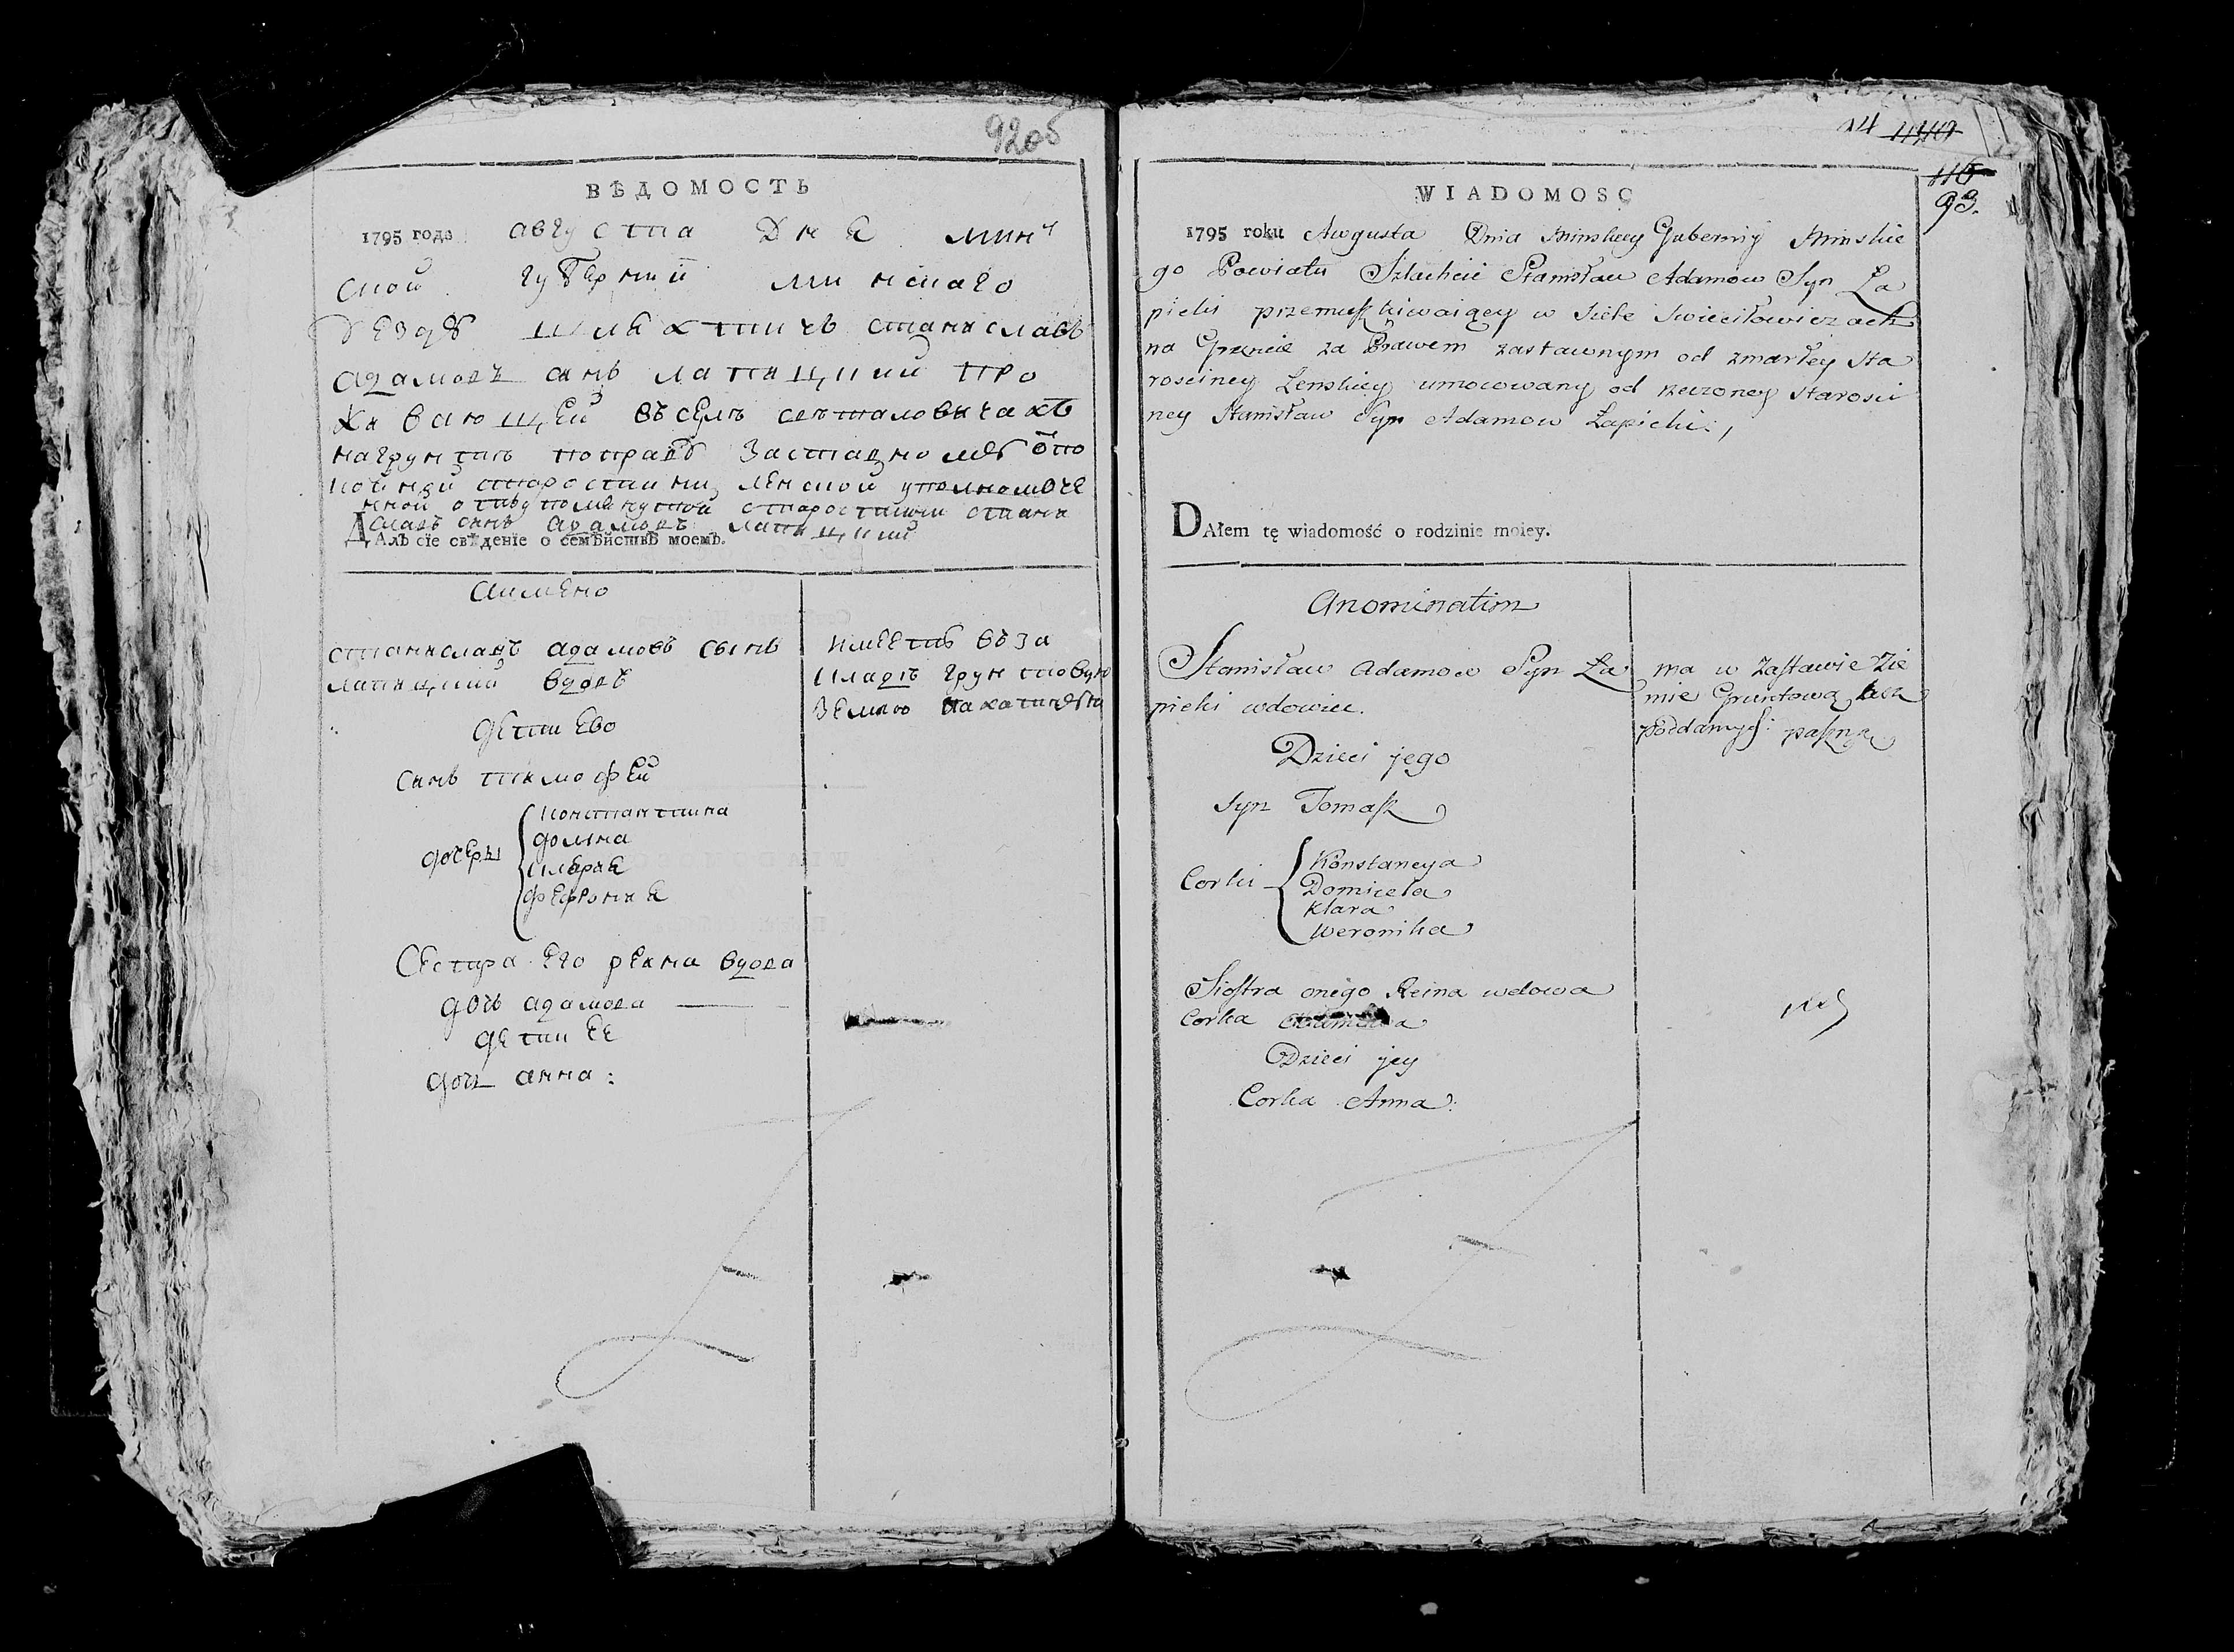 92об
ВѢДОМОСТЬ
1795 года августа дня минъ
ской губернии минскаго
уезду шляхтичь станиславъ
адамовъ синъ лапицкий про
живающей въ селѣ
нагрунтѣ поправу заставному отпо
койной старостини ленской уполномоче
нной отвупомянутой старостини стани
славъ синъ адамовъ лапицкий
ДАлъ сїе свѣденїе о семѣйствѣ моемъ.
аимено
станиславъ адамовъ сынъ
лапицкий вдовъ
дети ево
синъ тимофей
дочеры
константина
домна
клария
феврония
Сестра его реина вдова
дочь адамова
дети ее
дочь анна:
имеетъ вза
кладѣ грунтовую
землю
14
116
93.
WIADOMOSC
1795 roku Awgusta Dnia Minskiey Gubernij Minskie
go Powiatu Szlachcic Stanisław Adamow Syn Ła
picki przemieszkiwaiącey w Siele Swieciłowiczach
na Gruncie za Prawem zastawnym od zmarłey Sta
rosciney Lenskiey umocowany od rzeczoney Starosci
ney Stanisław Syn Adamow Łapicki:,
DAłem tę wiadomość o rodzinie moiey.
Anominatim
Stanisław Adamow Syn Ła
picki wdowiec.
Dzieci jego
Syn Tomasz
Corki
Konstancya
Domicela
Klara
Weronika
Siostra onego Reina wdowa
Corka
Dzieci jey
Corka Anna:
ma w Zastawie Zie
mie Gruntową bez
poddanych: paszną